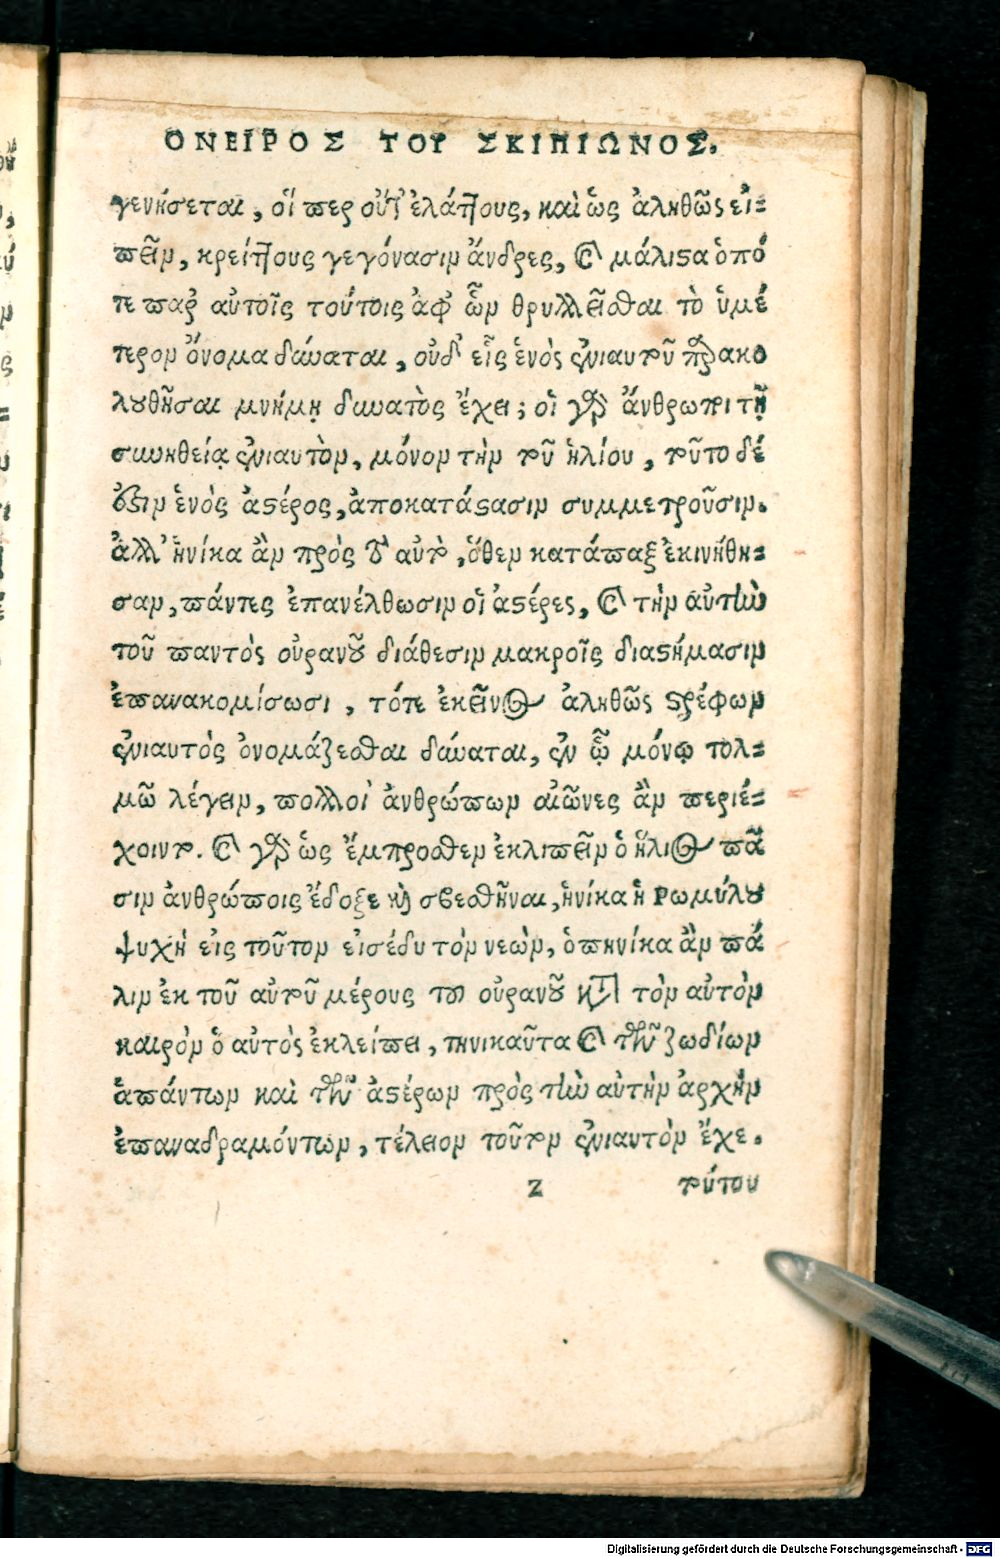 ΟΝΕΙΡΟΣ ΤΟΥ ΣΚΙΠΙΩΝΟΣ.
γενήσεται, οἵ περ οὔτ' ἐλάττους, καὶ ὡς ἀληθῶς εἰ=
πεῖν, κρείττους γεγόνασιν ἄνδρες, καὶ μάλιστα ὁπό
τε παρ' αὐτοῖς τούτοις ἀφ' ὧν θρυλλεῖσθαι τὸ ὑμέ
τερον ὄνομα δύναται, οὐδ' εἷς ἑνὸς ἐνιαυτοῦ παρακο
λουθῆσαι μνήμῃ δυνατὸς ἔχει; οἱ γὰρ ἄνθρωποι τῇ
συνηθείᾳ ἐνιαυτὸν, μόνον τὴν τοῦ ἡλίου, τοῦτο δέ
ἐστιν ἑνὸς ἀστέρος, ἀποκατάστασιν συμμετροῦσιν.
ἀλλ' ἡνίκα ἂν πρὸς τὸ αὐτὸ, ὅθεν κατάπαξ ἐκινήθη=
σαν, πάντες ἐπανέλθωσιν οἱ ἀστέρες, καὶ τὴν αὐτὴν
τοῦ παντὸς οὐρανοῦ διάθεσιν μακροῖς διαστήμασιν
ἐπανακομίσωσι, τότε ἐκεῖνος ἀληθῶς στρέφων
ἐνιαυτὸς ὀνομάζεσθαι δύναται, ἐν ᾧ μόνῳ τολ=
μῶ λέγειν, πολλοὶ ἀνθρώπων αἰῶνες ἂν περιέ=
χοιντο. καὶ γὰρ ὡς ἔμπροσθεν ἐκλιπεῖν ὁ ἥλιος πᾶ
σιν ἀνθρώποις ἔδοξε καὶ σβεσθῆναι, ἡνίκα ἡ Ρωμύλου
ψυχὴ εἰς τοῦτον εἰσέδυ τὸν νεὼν, ὁπηνίκα ἂν πά
λιν ἐκ τοῦ αὐτοῦ μέρους τοῦ οὐρανοῦ κατὰ τὸν αὐτὸν
καιρὸν ὁ αὐτὸς ἐκλείπει, τηνικαῦτα καὶ τῶν ζωδίων
ἁπάντων καὶ τῶν ἀστέρων πρὸς τὴν αὐτὴν ἀρχὴν
ἐπαναδραμόντων, τέλειον τοῦτον ἐνιαυτὸν ἔχε.
Z τούτου
Digitalisierung gefördert durch die Deutsche Forschungsgemeinschaft - DFG